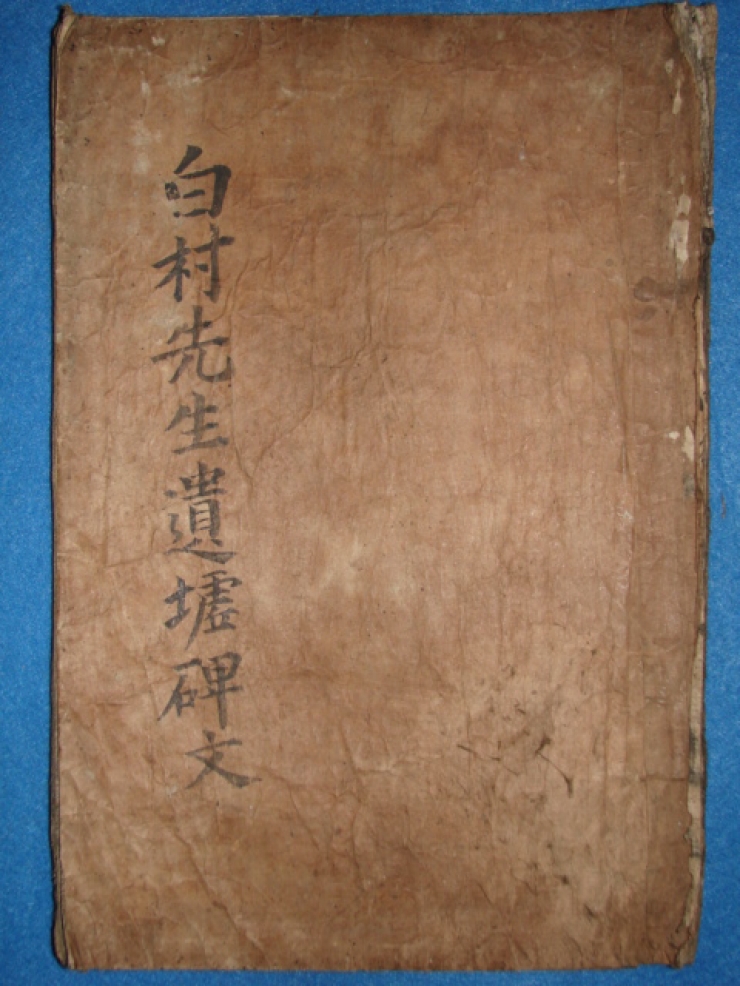 白村先生遺墟碑文